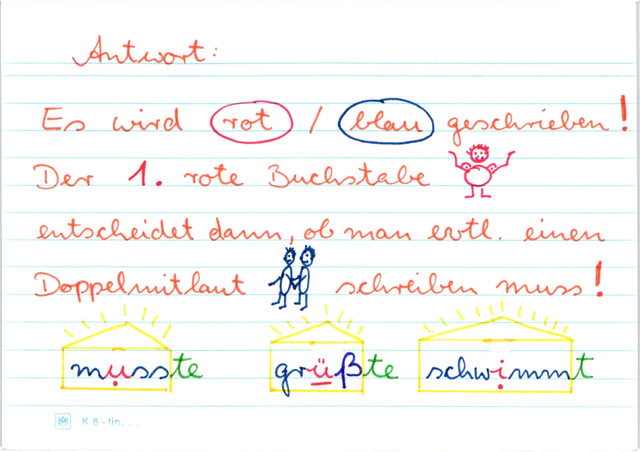 Antwort:
Es wird rot / blau geschrieben!
Der 1. rote Buchstabe
entscheidet dann, ob man evtl. einen
Doppelmitlaut schreiben muss!
musste grüßte schwimmt
K 5 - lin...